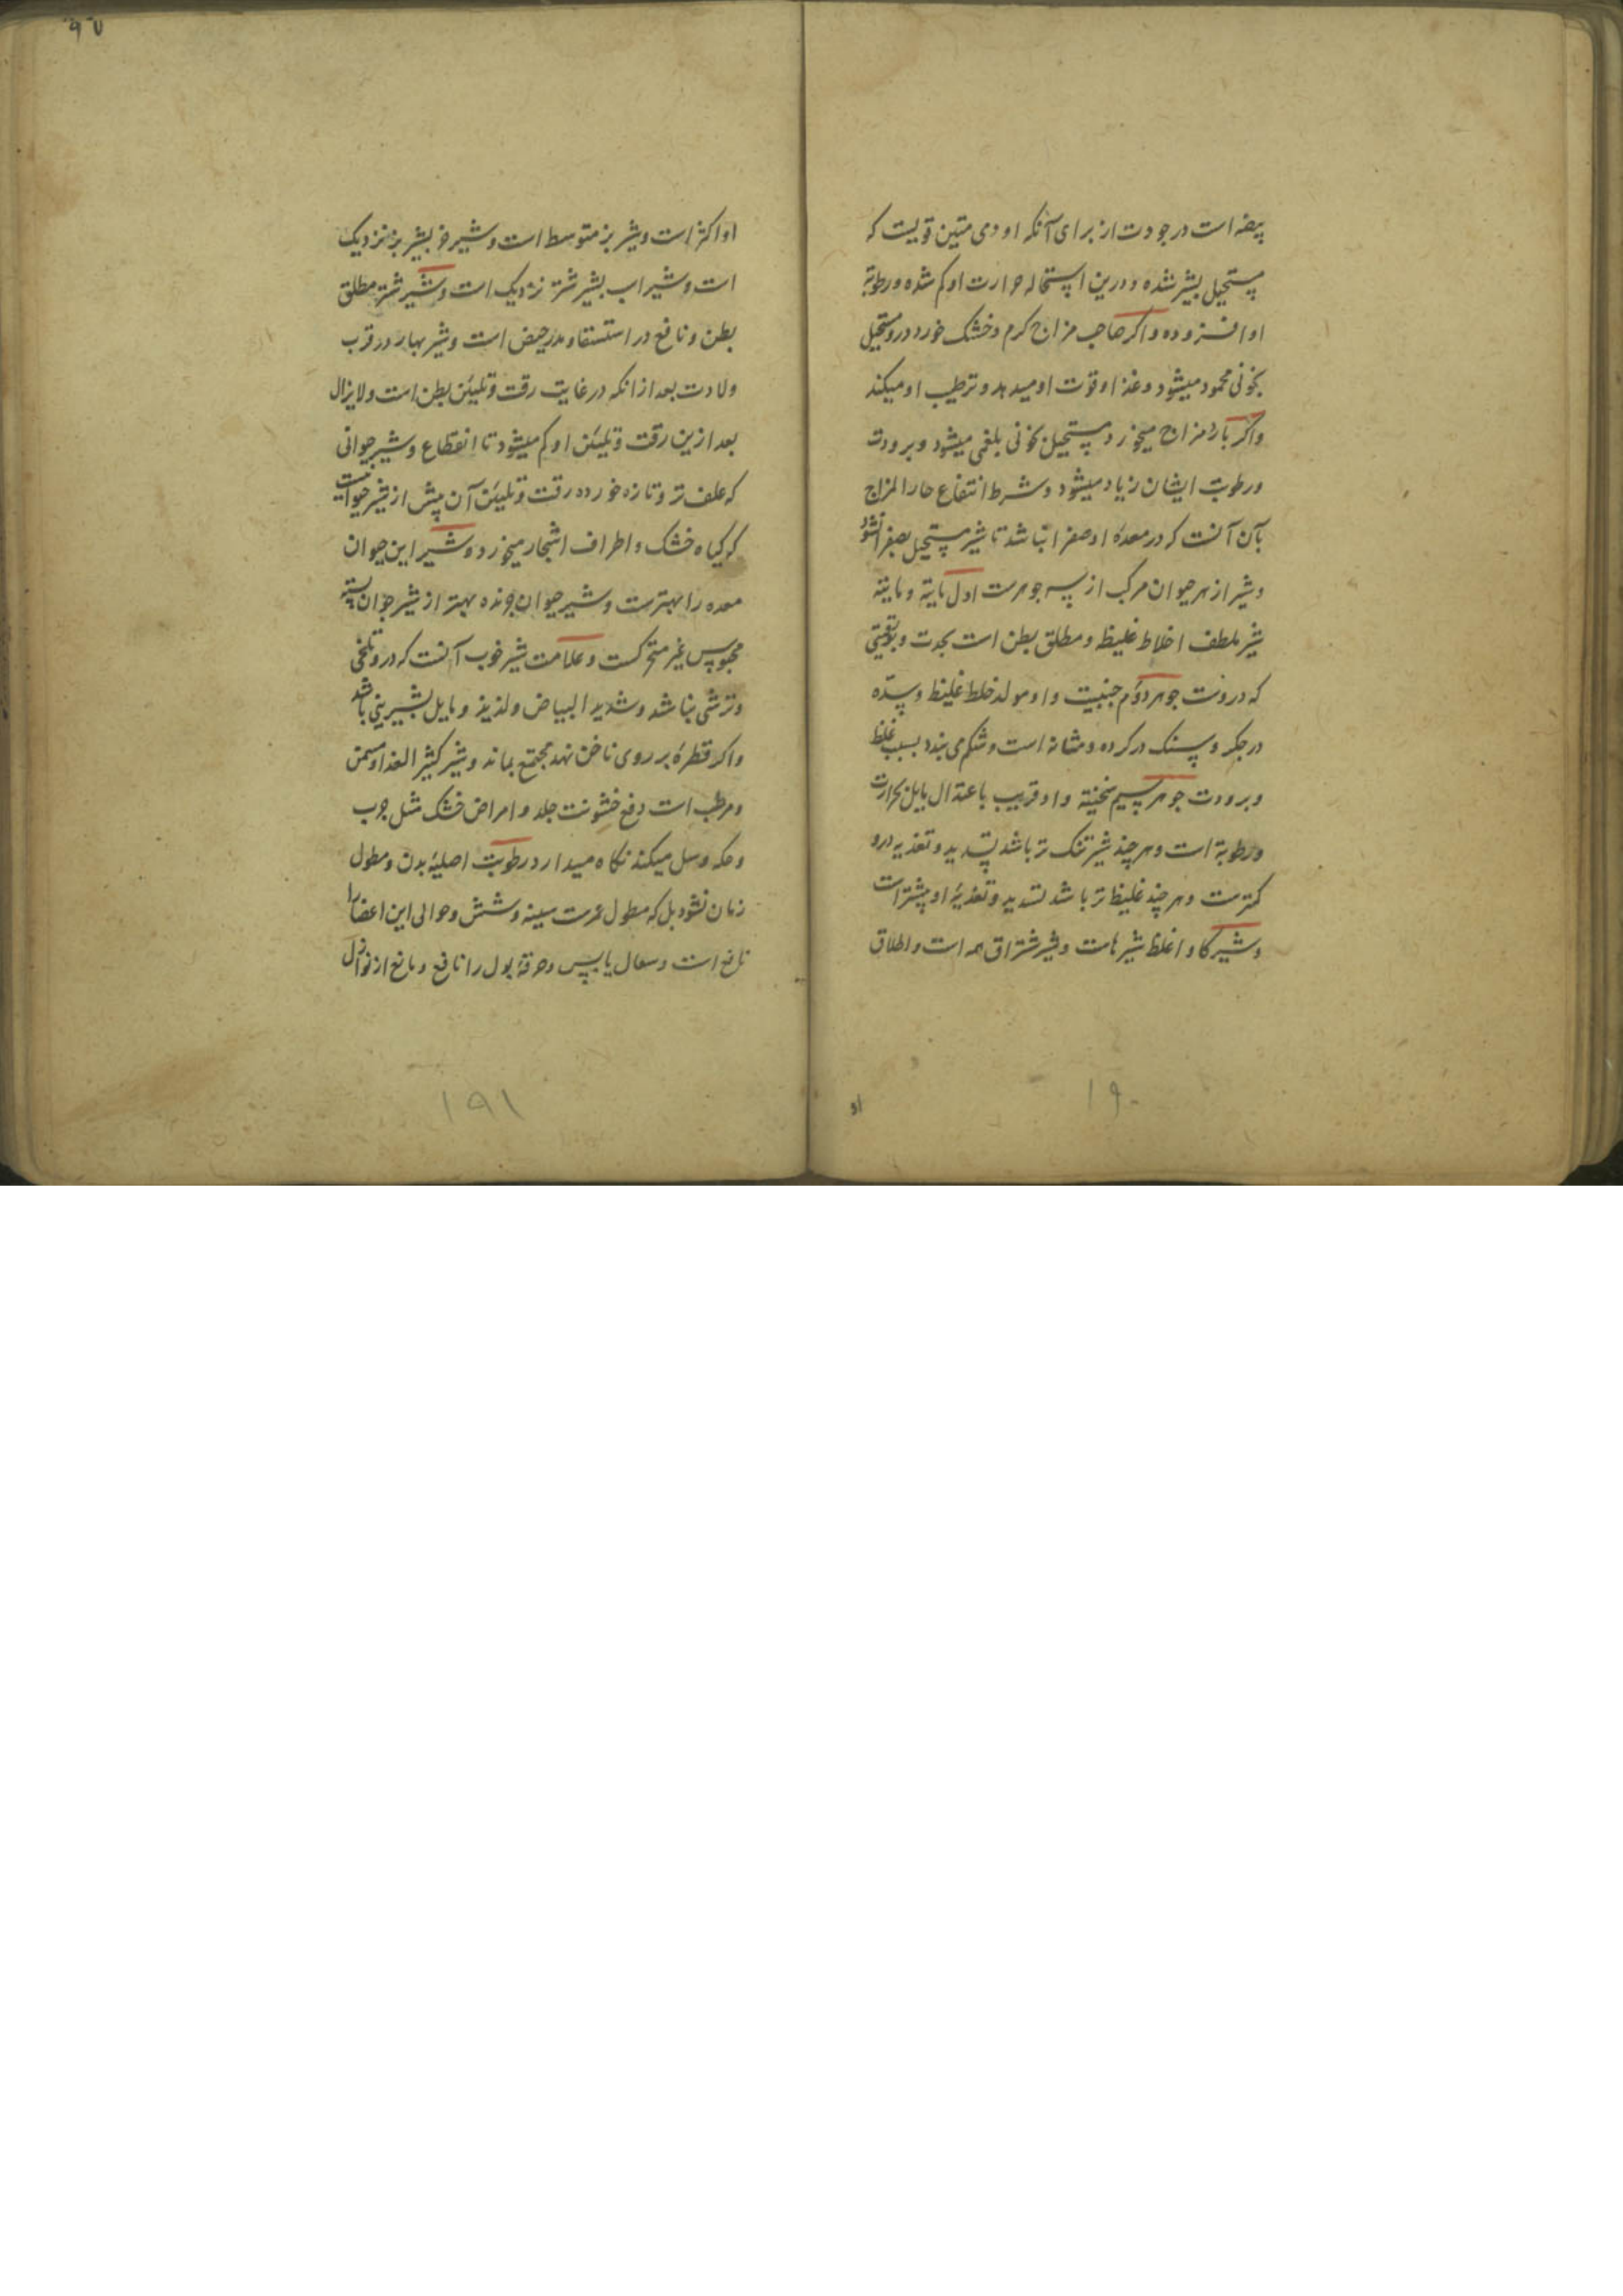 بیضه است در جودت از برای آنکه او دمی متین قویست که
مستحیل بشیر شده و درین استحاله حرارت او کم شده و رطوبة
او افزوده و اکر صاحب مزاج کرم و خشک خورد درو مستحیل
بخونی محمود میشود و غذا و قوت او میدهد و ترطیب او میکند
واکر بارد مزاج میخورد مستحیل بخونی بلغمی میشود و برودت
ورطوبت ایشان زیاد میشود و شرط انتفاع حار المزاج
بآن آنست که در معدهٔ او صفرا نباشد تا شیر مستحیل بصفرا نشود
وشیر از هر حیوان مرکب از سه جوهرست اول مایة و مایة
شیر ملطف اخلاط غلیظ و مطلق بطن است بحدت و بورقیتی
که دروست جوهر دوم جبنیت و او مولد خلط غلیظ و سده
در جکر و سنک در کرده و مثانه است و شکم می بندد بسبب غلظ
و برودت جوهر سیم سخینة و او قریب باعتدال مایل بحرارت
ورطوبة است و هر چند شیر تنک تر باشد تسدید و تغذیه درو
کمترست و هر چند غلیظ تر باشد تسدید و تغذیهٔ او بیشتر است
وشیر کاو اغلظ شیرهاست و شیر شتر ارق همه است و اطلاق
او
۱۹۰
۹۵
او اکثر است و شیر بز متوسط است و شیر خر بشیر بز نزدیک
است و شیر اسب بشیر شتر نزدیک است و شیر شتر مطلق
بطن و نافع در استسقا و مدر حیض است و شیر بهار در قرب
ولادت بعد از انکه در غایت رقت و تلیین بطن است ولایزال
بعد ازین رقت و تلیین او کم میشود تا انقطاع و شیر حیوانی
که علف تر و تازه خورده رقت و تلیین آن بیش از شیر حیوانیست
که کیاه خشک و اطراف اشجار میخورد و شیر این حیوان
معده را بهترست و شیر حیوان چرنده بهتر از شیر حیوان بسته
محبوس غیر متحرکست و علامت شیر خوب آنست که درو تلخی
و ترشی نباشد و شدید البیاض و لذیذ و مایل بشیرینی باشد
واکر قطرهٔ بر روی ناخن نهد مجتمع بماند و شیر کثیر الغذا و مسمن
و مرطب است دفع خشونت جلد و امراض خشک مثل جرب
و حکه و سل میکند نکاه میدارد رطوبت اصلیهٔ بدن و مطول
زمان نشود بل که مطول عمرست سینه و شش و حوالی این اعضا را
نافع است و سعال یابس و حرقهٔ بول را نافع و مانع از نوازل
۱۹۱